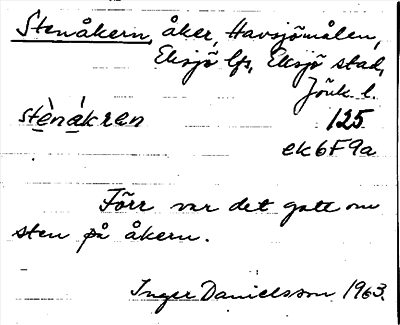 Stenåkern, åker, Havsjömålen,
Eksjö lfs, Eksjö stad,
Jönk. l.
stènákren 125
ek6F9a
Förr var det gott om
sten på åkern.
Inger Danielsson 1963.